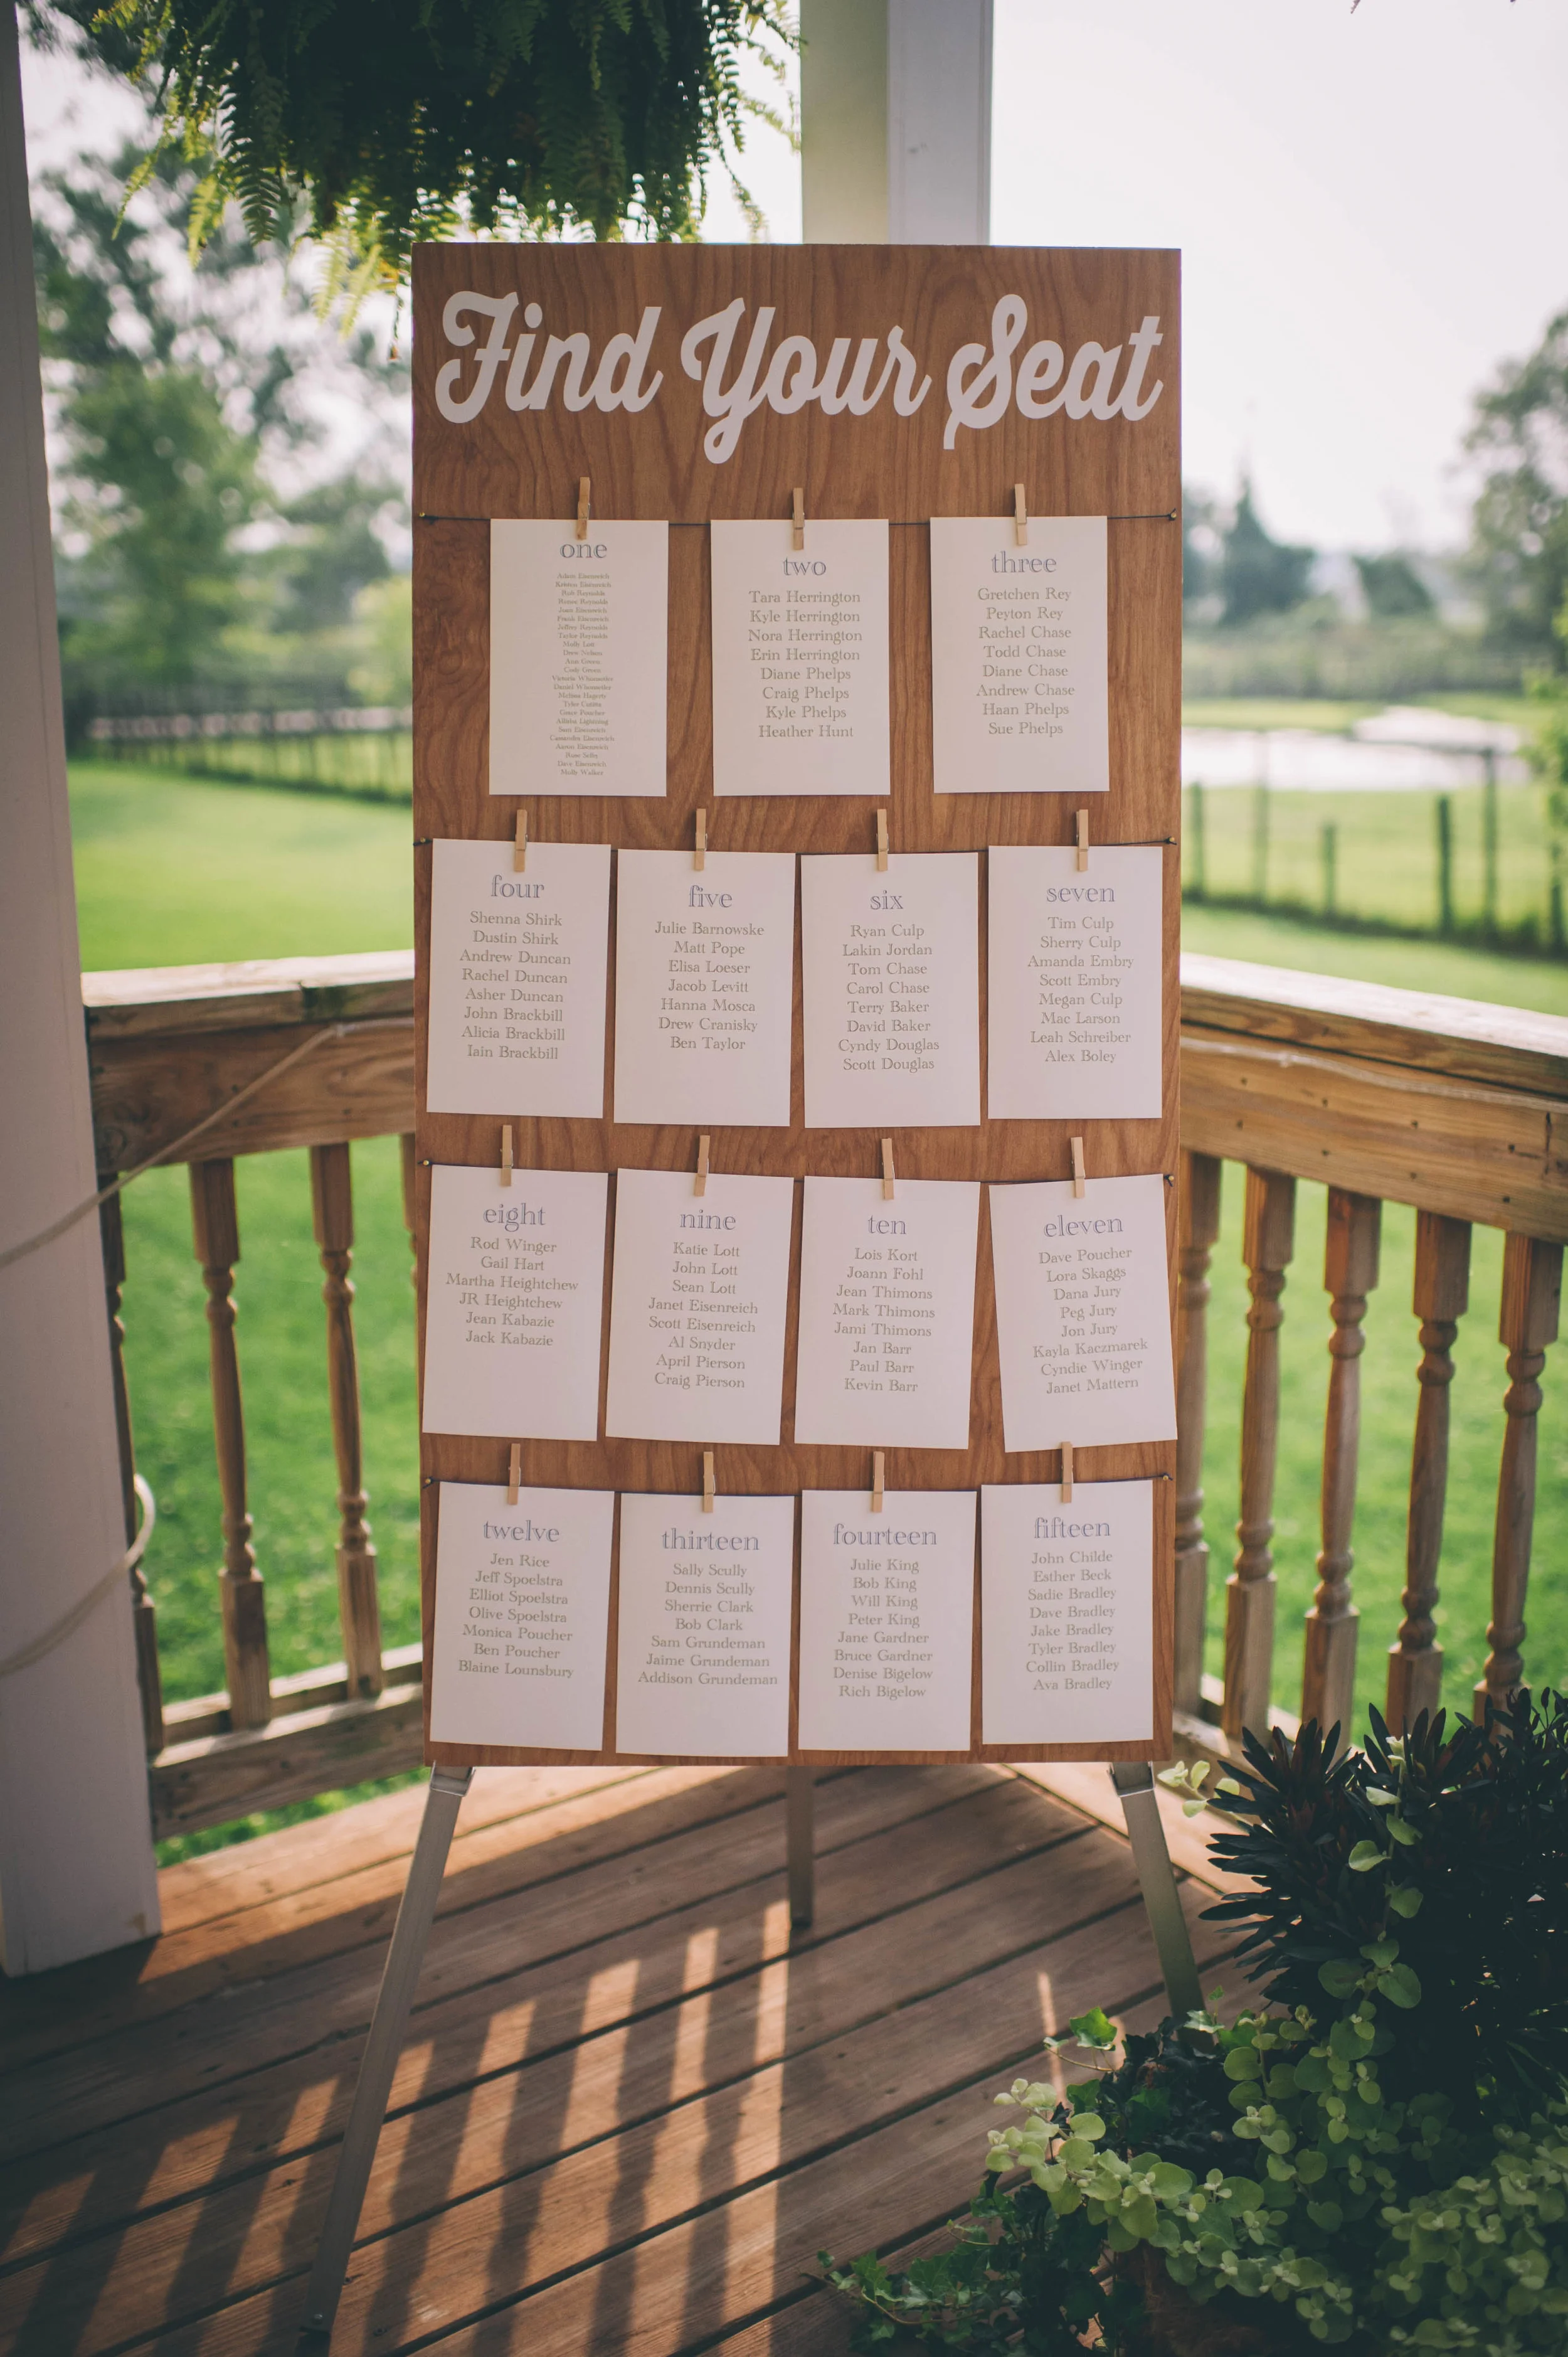 Find Your Seat
one
Adam Eisenreich
Rob Reynolds
Renee Reynolds
Joan Eisenreich
Frank Eisenreich
Jeffrey Reynolds
Taylor Reynolds
Molly Lott
Drew Nelson
Ann Green
Cody Green
Daniel
Melissa Hagerty
Tyler
Grace Poucher
Lightning
Eisenreich
Cassandra Eisenreich
Aaron Eisenreich
Rose Selby
Dave Eisenreich
Molly Walker
two
Tara Herrington
Kyle Herrington
Nora Herrington
Erin Herrington
Diane Phelps
Craig Phelps
Kyle Phelps
Heather Hunt
three
Gretchen Rey
Peyton Rey
Rachel Chase
Todd Chase
Diane Chase
Andrew Chase
Haan Phelps
Sue Phelps
four
Shenna Shirk
Dustin Shirk
Andrew Duncan
Rachel Duncan
Asher Duncan
John Brackbill
Alicia Brackbill
Iain Brackbill
five
Julie Barnowske
Matt Pope
Elisa Loeser
Jacob Levitt
Hanna Mosca
Drew Cranisky
Ben Taylor
six
Ryan Culp
Lakin Jordan
Tom Chase
Carol Chase
Terry Baker
David Baker
Cyndy Douglas
Scott Douglas
seven
Tim Culp
Sherry Culp
Amanda Embry
Scott Embry
Megan Culp
Mac Larson
Leah Schreiber
Alex Boley
eight
Rod Winger
Gail Hart
Martha Heightchew
JR Heightchew
Jean Kabazie
Jack Kabazie
nine
Katie Lott
John Lott
Sean Lott
Janet Eisenreich
Scott Eisenreich
Al Snyder
April Pierson
Craig Pierson
ten
Lois Kort
Joann Fohl
Jean Thimons
Mark Thimons
Jami Thimons
Jan Barr
Paul Barr
Kevin Barr
eleven
Dave Poucher
Lora Skaggs
Dana Jury
Peg Jury
Jon Jury
Kayla Kaczmarek
Cyndie Winger
Janet Mattern
twelve
Jen Rice
Jeff Spoelstra
Elliot Spoelstra
Olive Spoelstra
Monica Poucher
Ben Poucher
Blaine Lounsbury
thirteen
Sally Scully
Dennis Scully
Sherrie Clark
Bob Clark
Sam Grundeman
Jaime Grundeman
Addison Grundeman
fourteen
Julie King
Bob King
Will King
Peter King
Jane Gardner
Bruce Gardner
Denise Bigelow
Rich Bigelow
fifteen
John Childe
Esther Beck
Sadie Bradley
Dave Bradley
Jake Bradley
Tyler Bradley
Collin Bradley
Ava Bradley